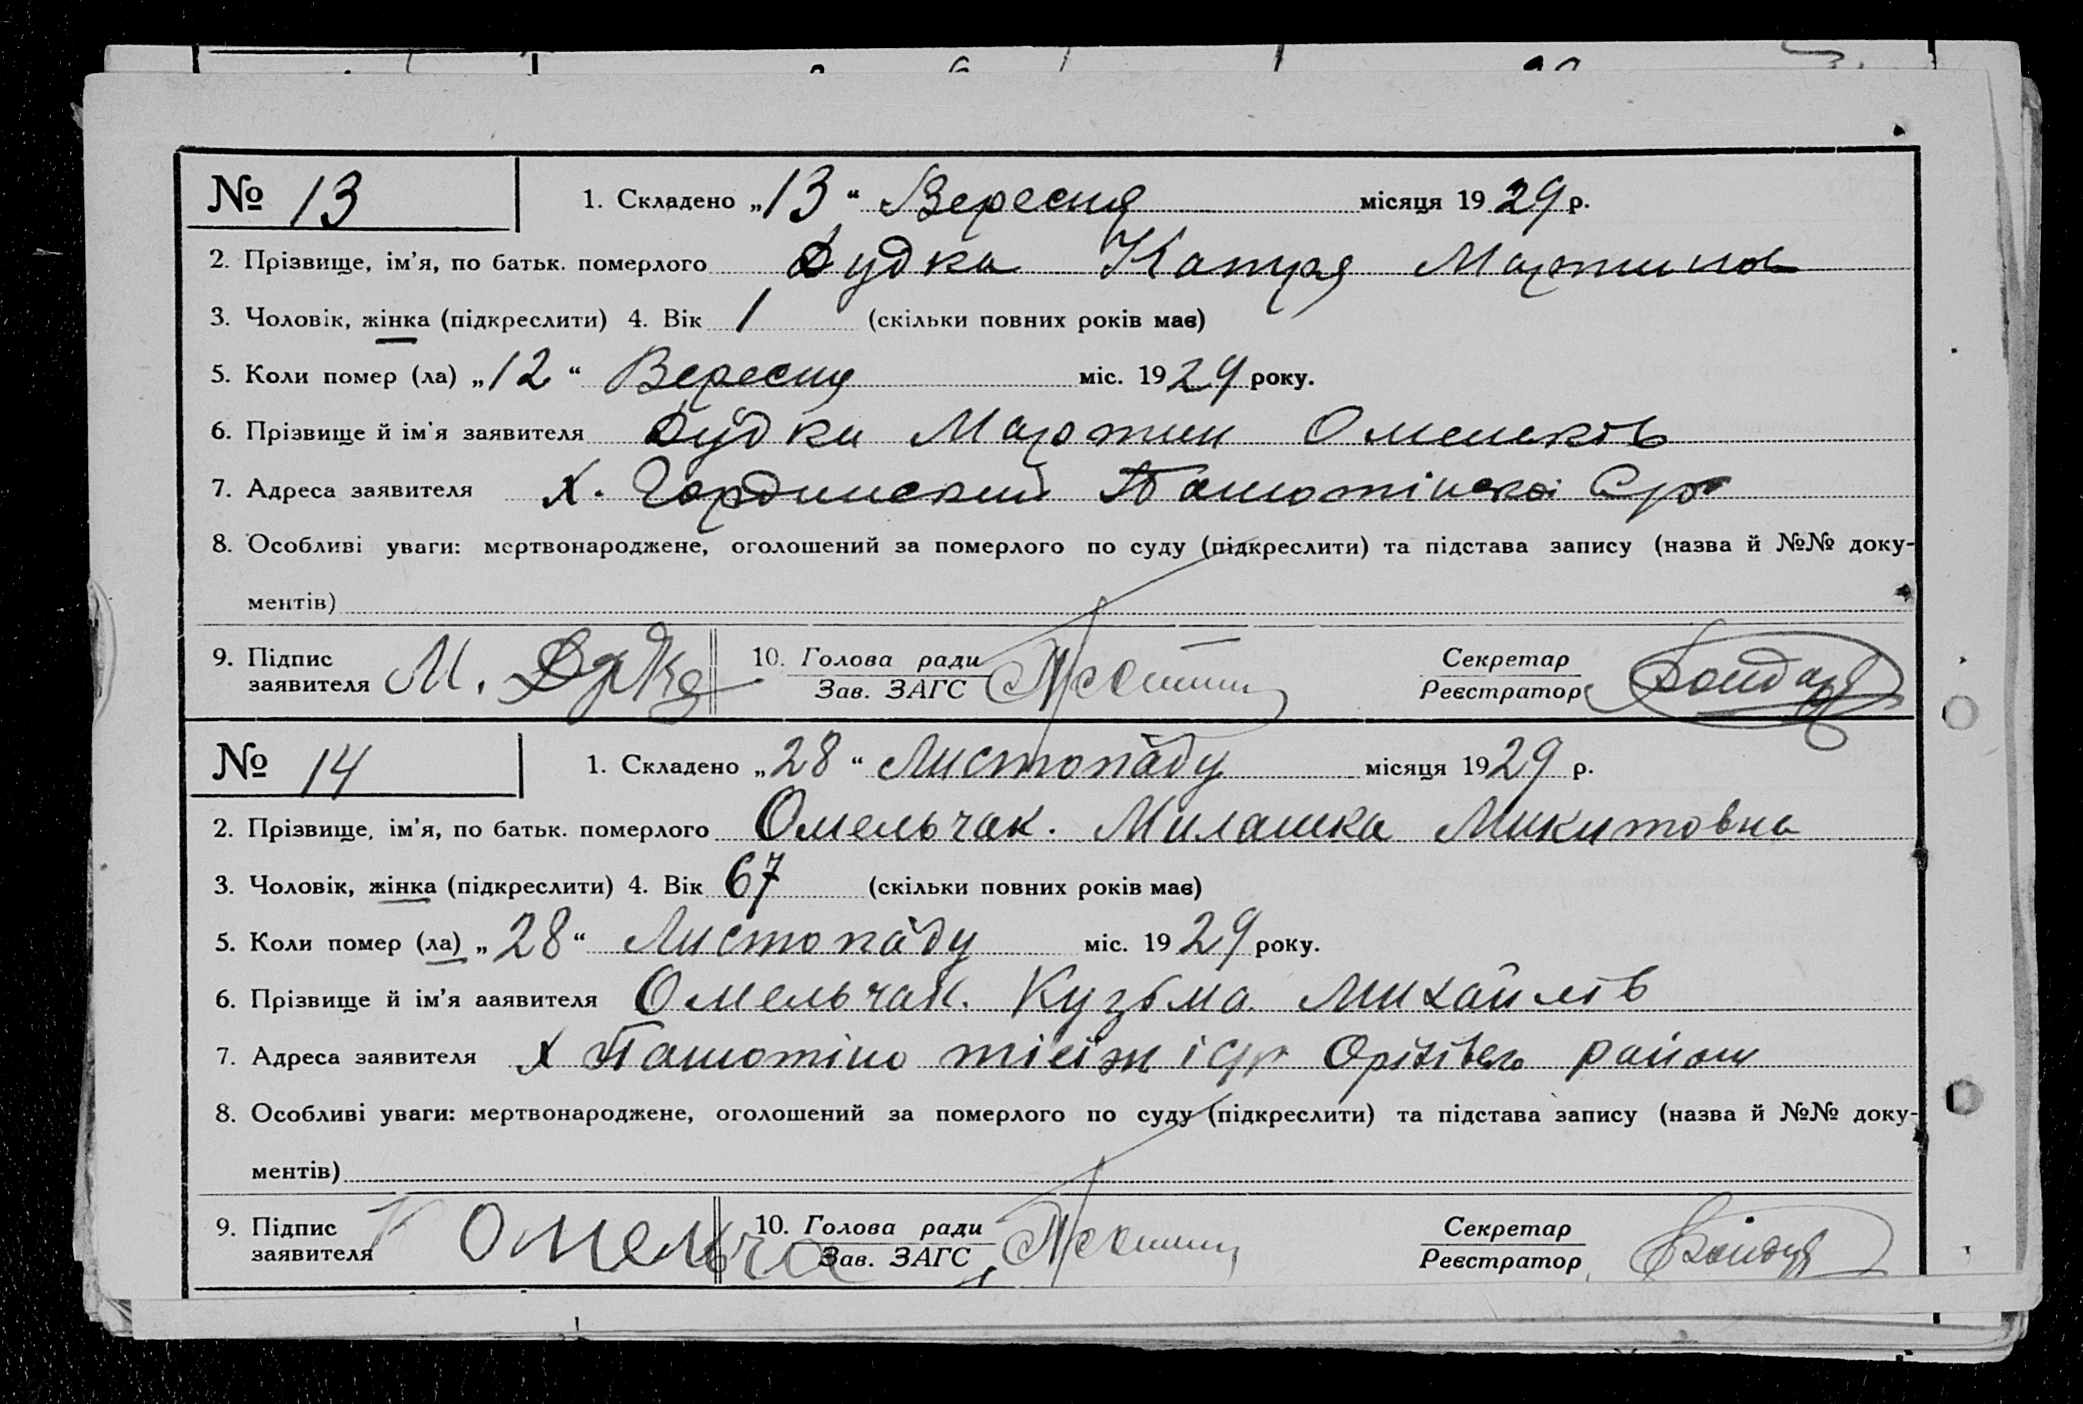 № 13
1. Складено „13“ Вересня місяця 1929 р.
2. Прізвище, ім'я, по батьк. померлого Дудка Катря Мартинов
3. Чоловік, жінка (підкреслити) 4. Вік 1 (скільки повних років має)
5. Коли помер (ла) „12“ Вересня міс. 1929 року.
6. Прізвище й ім'я заявителя Дудка Мартин
7. Адреса заявителя х.
8. Особливі уваги: мертвонароджене, оголошений за померлого по суду (підкреслити) та підстава запису (назва й №№ доку-
ментів)
9. Підпис М. Дудка 10. Голова ради Секретар
заявителя Зав. ЗАГС Реєстратор
№ 14
1. Складено „28“ Листопаду місяця 1929 р.
2. Прізвище, ім'я, по батьк. померлого Омельчак. Милашка Микитовна
3. Чоловік, жінка (підкреслити) 4. Вік 67 (скільки повних років має)
5. Коли помер (ла) „28“ Листопаду міс. 1929 року.
6. Прізвище й ім'я заявителя Омельчак. Кузьма Михайлів
7. Адреса заявителя х район
8. Особливі уваги: мертвонароджене, оголошений за померлого по суду (підкреслити) та підстава запису (назва й №№ доку-
ментів)
9. Підпис К Омельча 10. Голова ради Секретар
заявителя Зав. ЗАГС Реєстратор